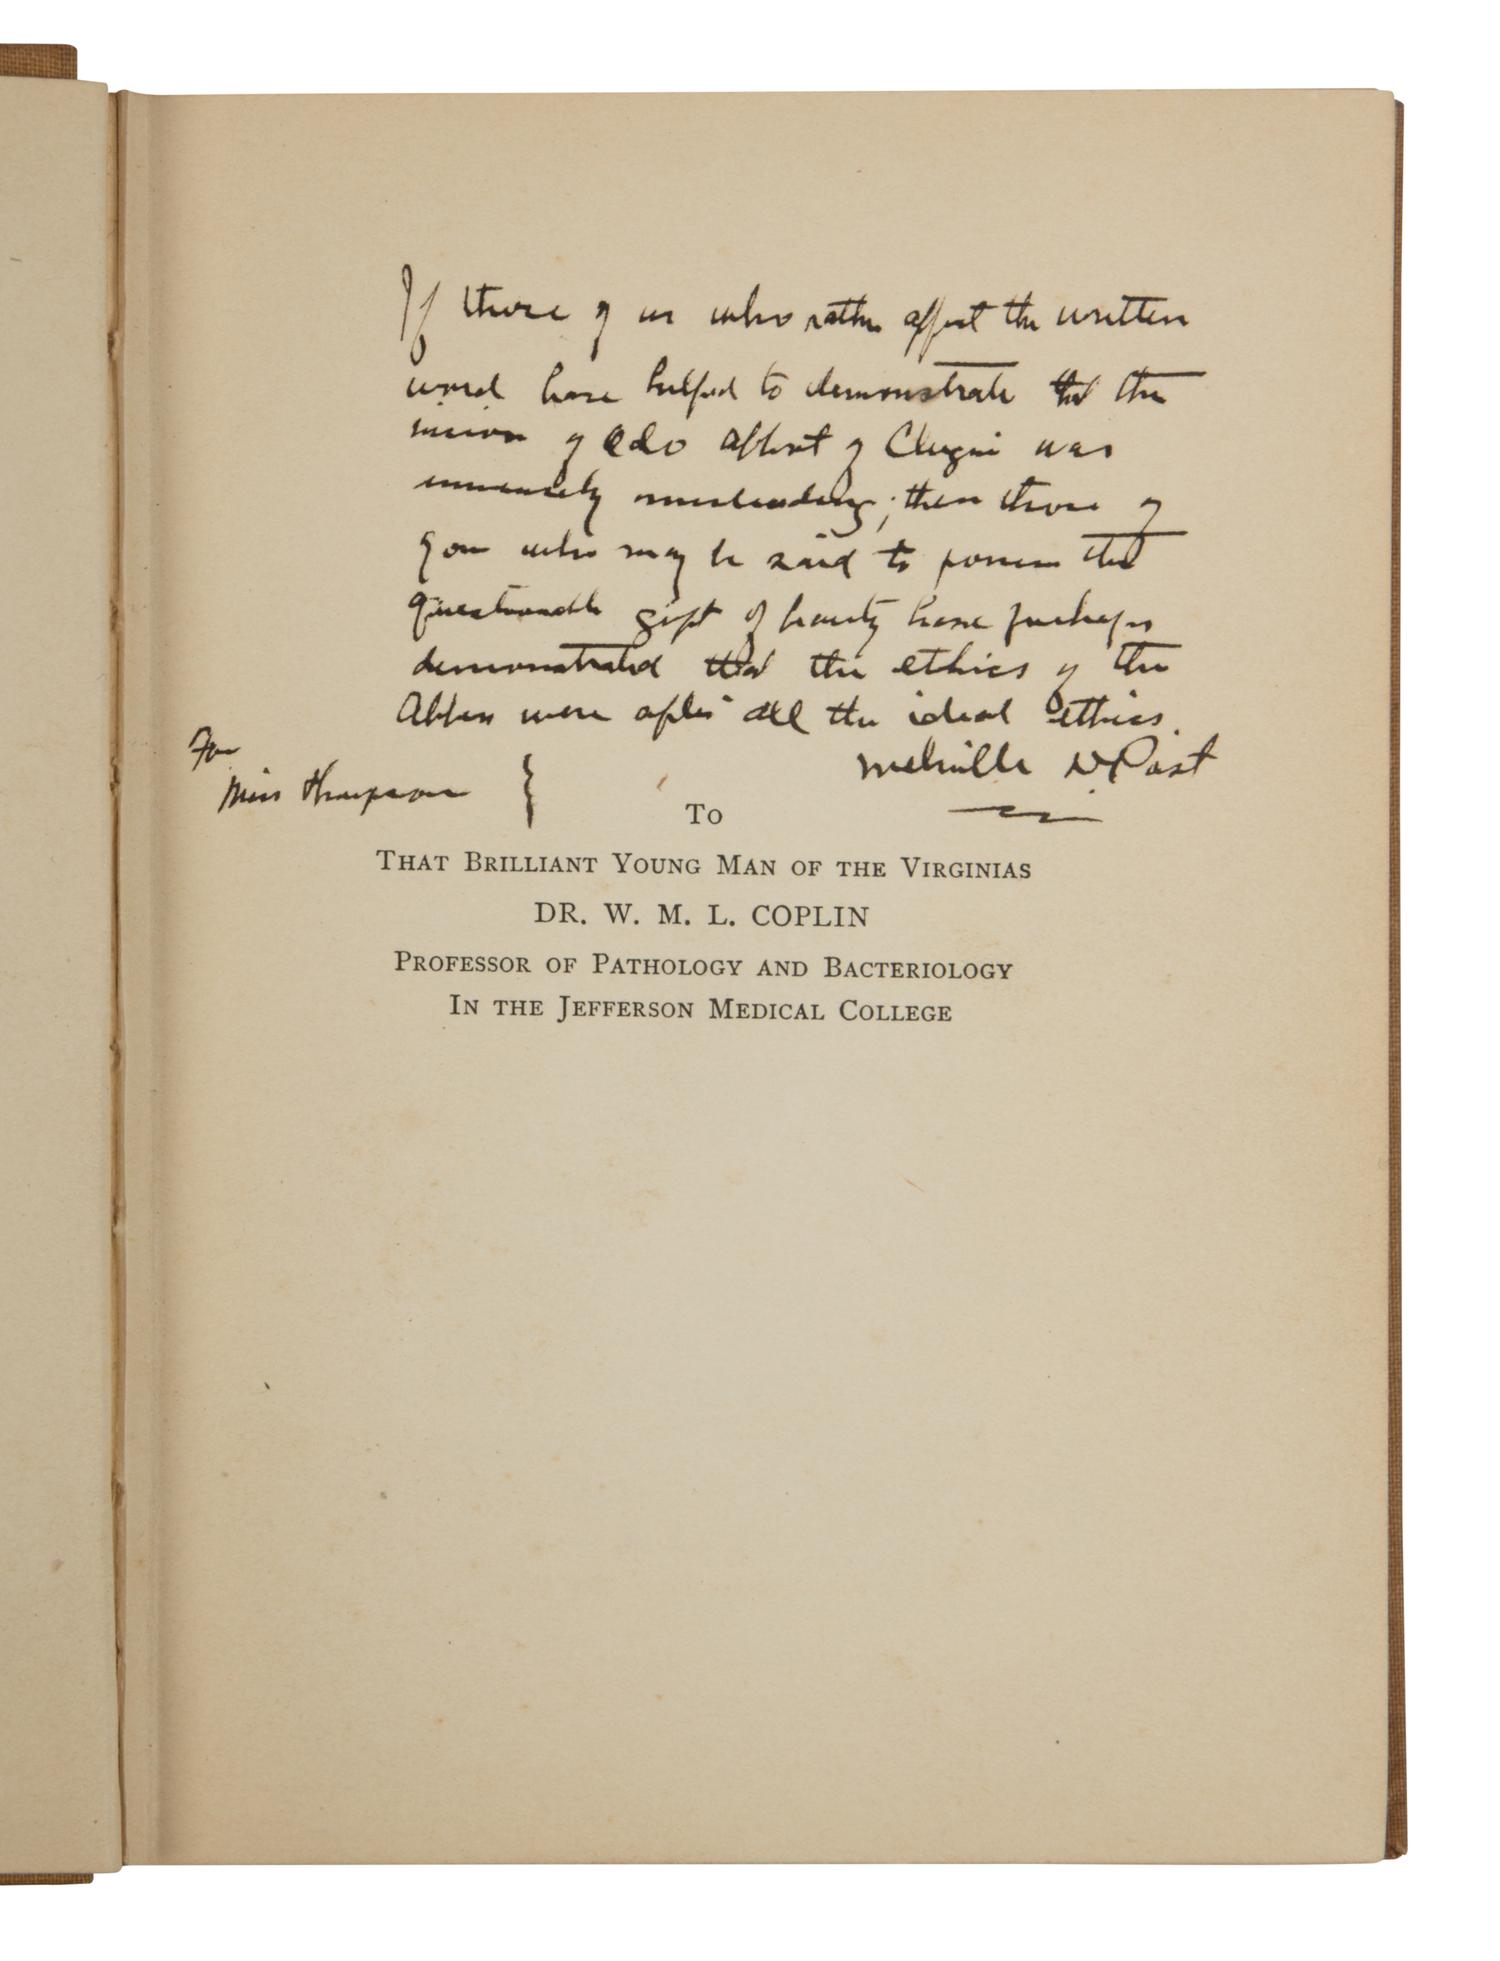 If those of us who rather affect the written
word have helped to demonstrate that the
vision of Odo Abbot of Clugni was
immensely misleading; then those of
you who may be said to possess that
questionable gift of beauty have perhaps
demonstrated that the ethics of the
Abbess were after all the ideal ethics.
Melville D Post
For
Miss Thompson }
To
That Brilliant Young Man of the Virginias
DR. W. M. L. COPLIN
Professor of Pathology and Bacteriology
In the Jefferson Medical College